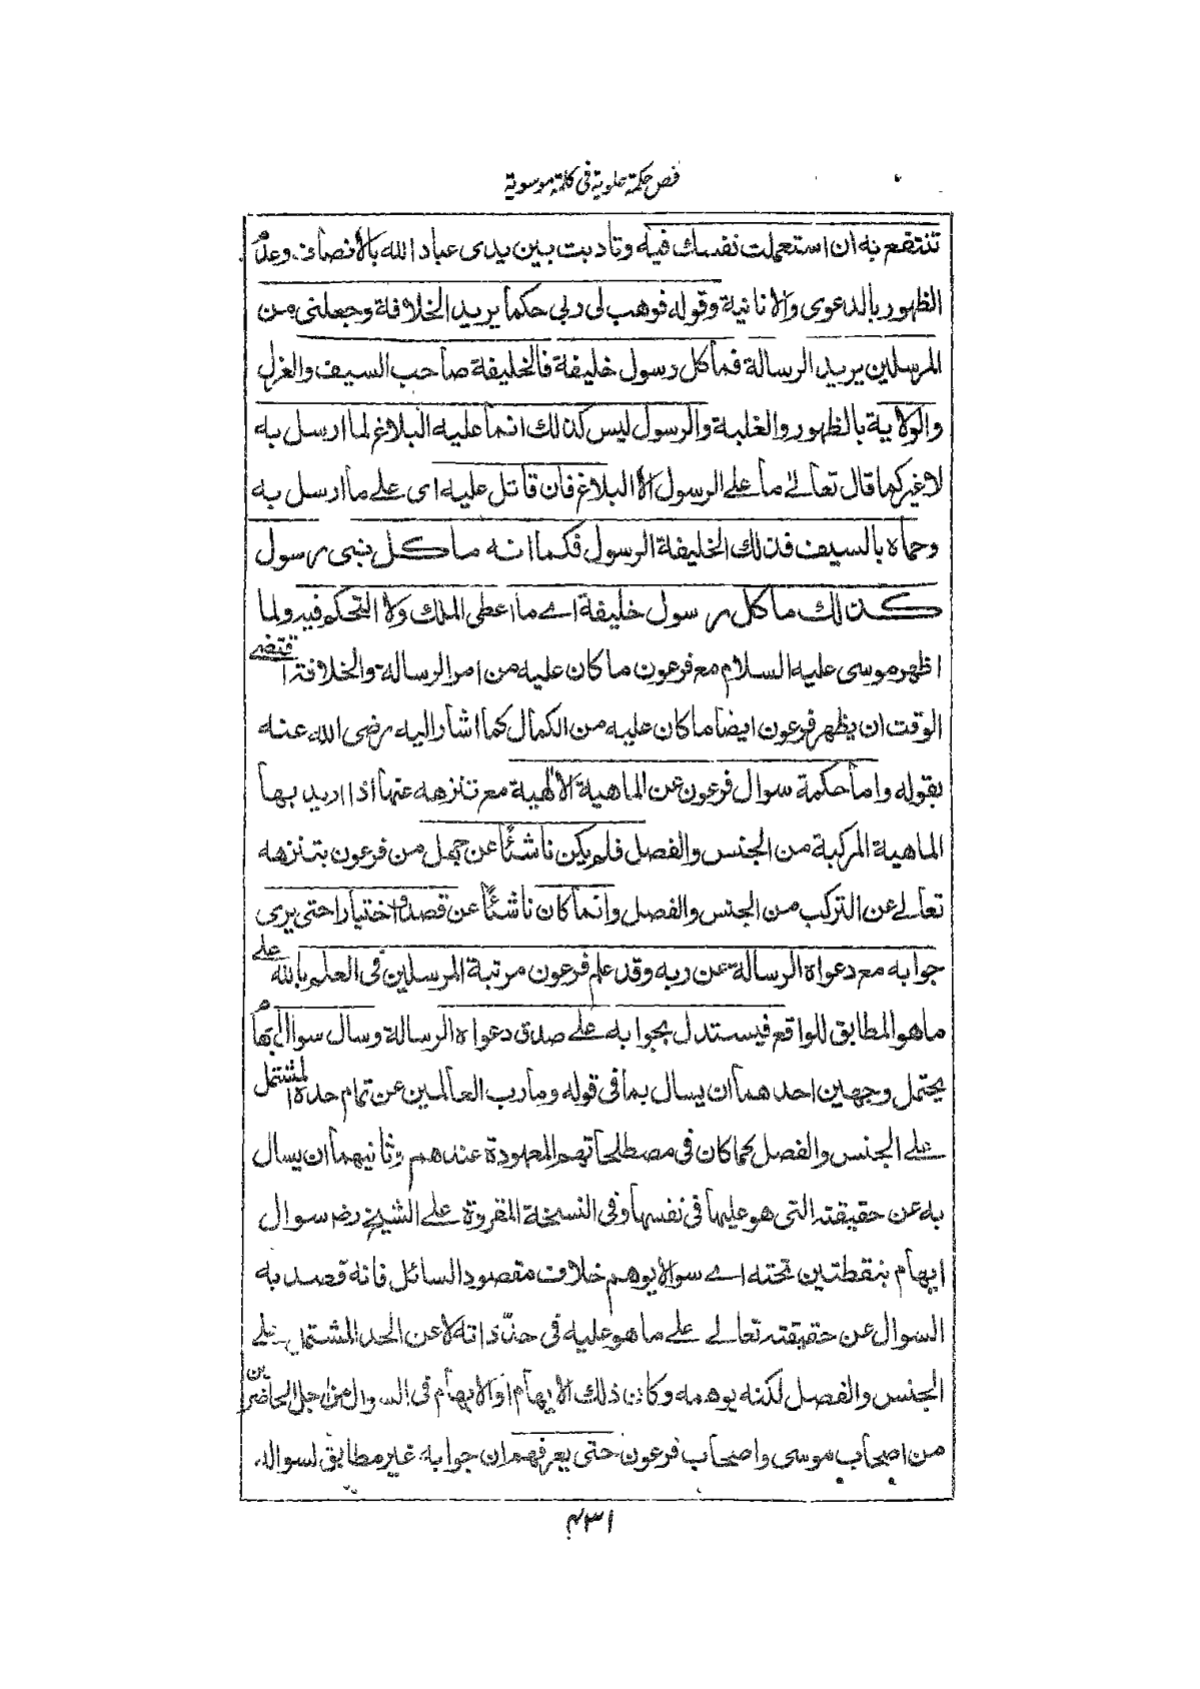 فص حكمة علوية فى كلمة موسوية
تنتفع به ان استعملت نفسك فيه وتادبت بين يدى عباد الله بالانصاف وعدم
الظهور بالدعوى والانانية وقوله فوهب لى ربى حكما يريد الخلافة وجعلنى من
المرسلين يريد الرسالة فما كل رسول خليفة فالخليفة صاحب السيف والعزل
والولاية بالظهور والغلبة والرسول ليس كذلك انما عليه البلاغ لما ارسل به
لا غير كما قال تعالى ما على الرسول الا البلاغ فان قاتل عليه اى على ما ارسل به
وحماه بالسيف فذلك الخليفة الرسول فكما انه ما كل نبى رسول
كذلك ما كل رسول خليفة اے ما اعطى الملك ولا التحكم فيه ولما
اظهر موسى عليه السلام مع فرعون ما كان عليه من امر الرسالة والخلافة اقتضے
الوقت ان يظهر فرعون ايضا ما كان عليه من الكمال كما اشار اليه رضى الله عنه
بقوله واما حكمة سوال فرعون عن الماهية الالٰهية مع تنزهه عنها اذا اريد بها
الماهية المركبة من الجنس والفصل فلم يكن ناشئًا عن جهل من فرعون بتنزهه
تعالے عن التركب من الجنس والفصل وانما كان ناشئًا عن قصد واختيار حتى يرى
جوابه مع دعواه الرسالة عن ربه وقد علم فرعون مرتبة المرسلين فى العلم بالله علے
ما هو المطابق للواقع فيستدل بجوابه علے صدق دعواه الرسالة وسال سوال ابهام
يحتمل وجهين احدهما ان يسال بما فى قوله وما رب العالمين عن تمام حده المشتمل
علے الجنس والفصل كما كان فى مصطلحاتهم المعهودة عندهم وثانيهما ان يسال
به عن حقيقته التى هو عليها فى نفسها وفى النسخة المقروة علے الشيخ رضه سوال
ايهام بنقطتين تحته اے سوالا يوهم خلاف مقصود السائل فانه قصد به
السوال عن حقيقته تعالے علے ما هو عليه فى حدّ ذاته لا عن الحد المشتمل علے
الجنس والفصل لكنه يوهمه وكان ذلك الايهام او الابهام فى السوال من اجل الحاضرين
من اصحاب موسى واصحاب فرعون حتى يعرفهم ان جوابه غير مطابق لسواله
۴۳۱